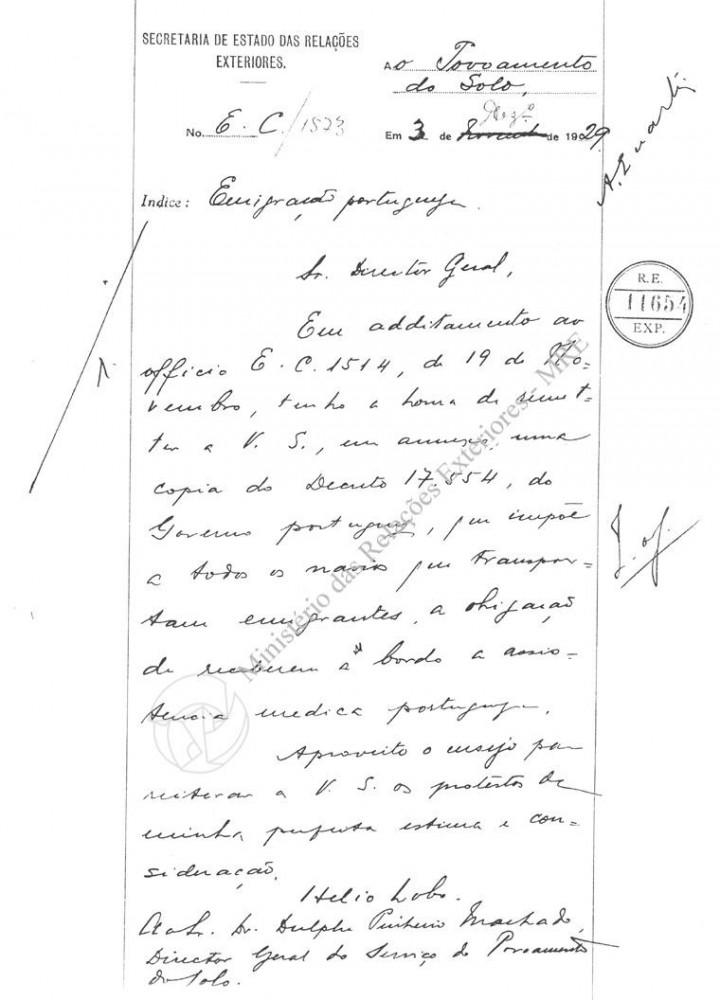 SECRETARIA DE ESTADO DAS RELAÇÕES
EXTERIORES.
Ao Povoamento
do Solo,
No. E. C/1523
Em 3 de Dezº de 1929
Indice: Emigração portugueza.
Sr. Director Geral,
R.E.
11654
EXP.
Em additamento ao
officio E. C. 1514, de 19 de No-
vembro, tenho a honra de remet-
ter a V. S., em annexo, uma
copia do Decreto 17.554, do
Governo portuguez, que impõe
a todos os navios que transpor-
tam emigrantes, a obrigação
de receberem a bordo a assis-
tencia medica portugueza.
Aproveito o ensejo para
reiterar a V. S. os protestos da
minha perfeita estima e con-
sideração.
Helio Lobo.
Ao Sr. Dr. Dulphe Pinheiro Machado,
Director Geral do Serviço do Povoamento
do Solo.
Ministério das Relações Exteriores - MRE